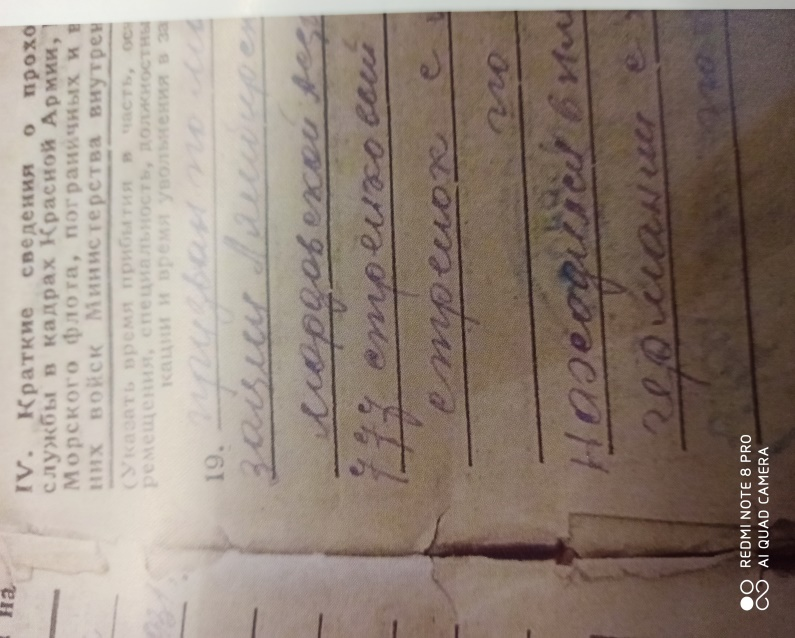 на
IV. Краткие сведения о прохо
службы в кадрах Красной Армии,
Морского флота, пограничных и в
них войск Министерства внутрен
(Указать время прибытия в часть, осн
ремещения, специальность, должностны
кации и время увольнения в за
19. призван по мо
зации
мордовской
777 стрелковый
стрелок с
го
находился в пл
германии с
REDMI NOTE 8 PRO
AI QUAD CAMERA